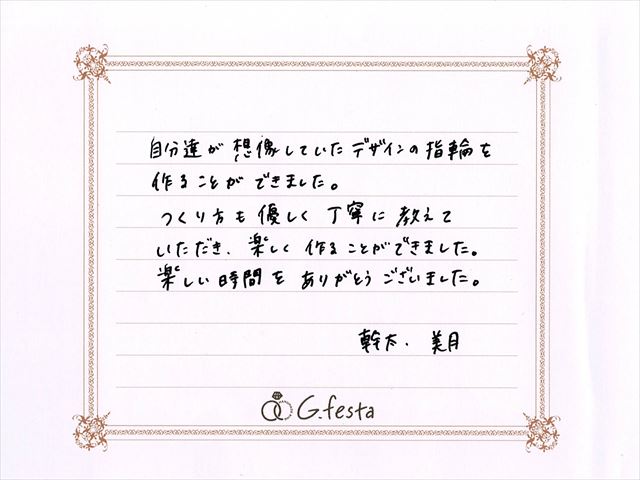 自分達が想像していたデザインの指輪を
作ることができました。
つくり方も優しく丁寧に教えて
いただき、楽しく作ることができました。
楽しい時間をありがとうございました。
幹太、美月
G.festa